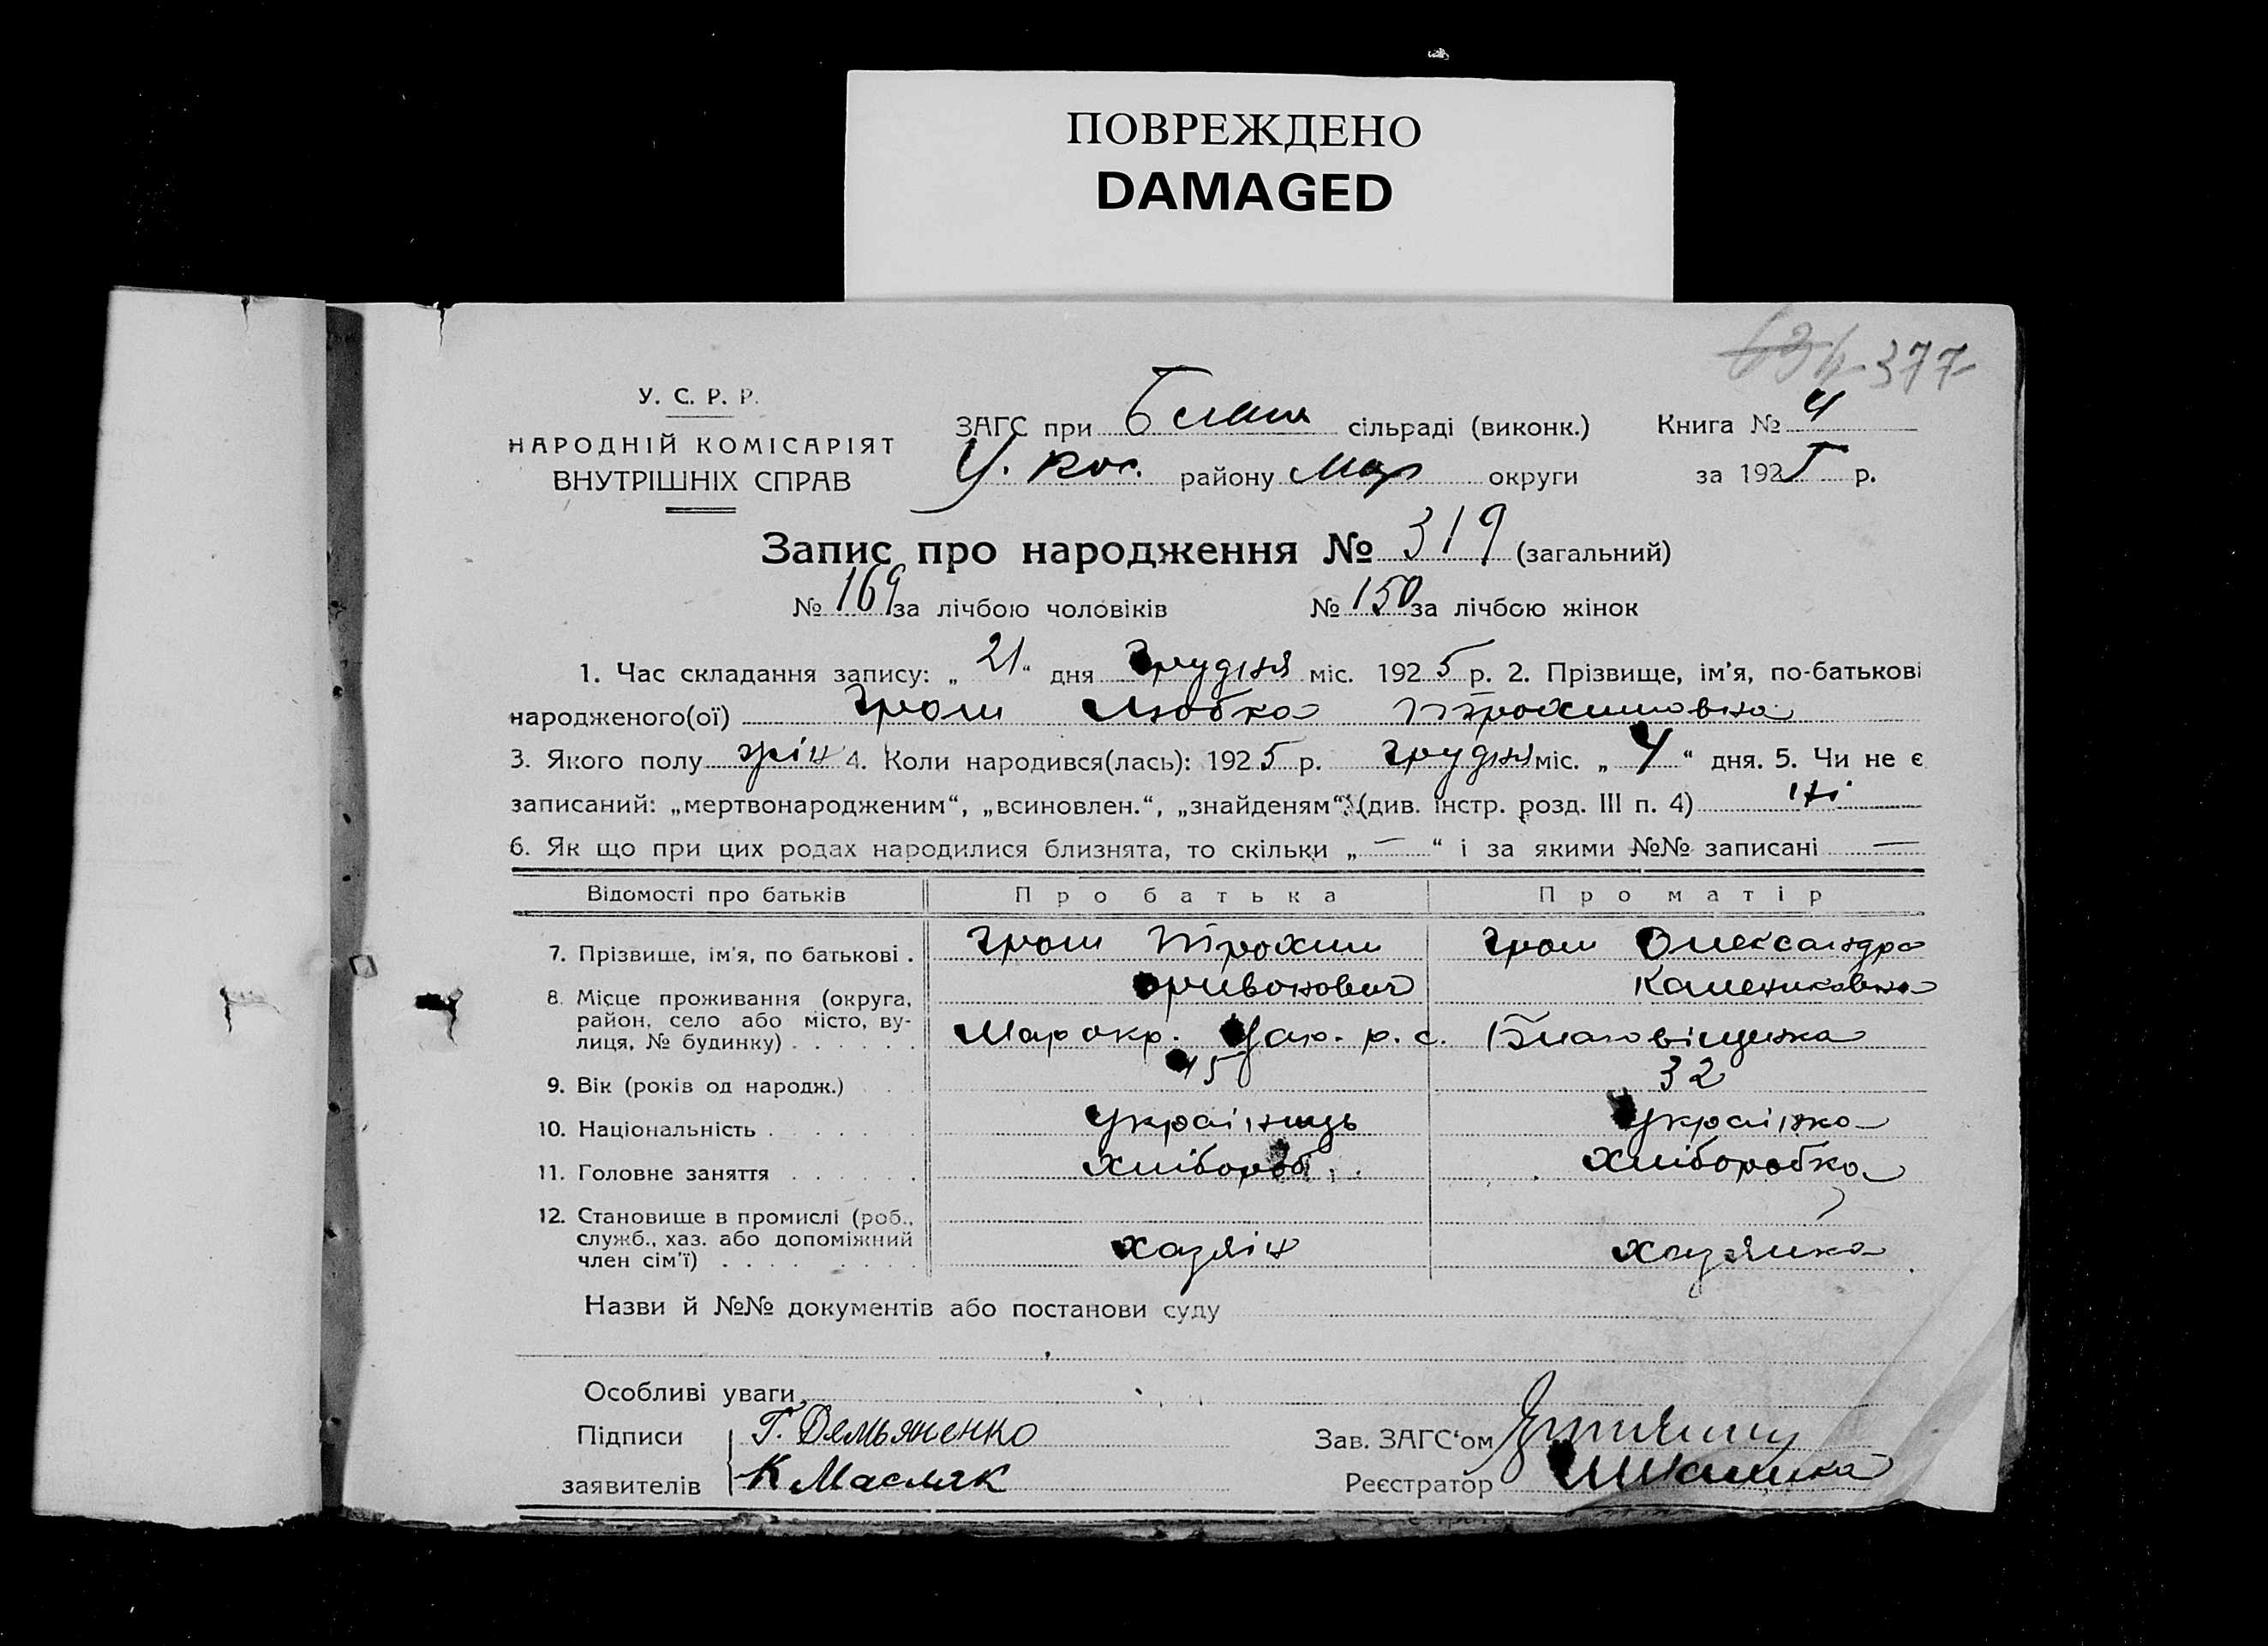 ПОВРЕЖДЕНО
DAMAGED
377
У. С. Р. Р.
НАРОДНІЙ КОМІСАРІЯТ
ВНУТРІШНІХ СПРАВ
ЗАГС при сільраді (виконк.)
У. Кос. району Мар округи
Книга № 4
за 1925 р.
Запис про народження № 319 (загальний)
№ 169 за лічбою чоловіків № 150 за лічбою жінок
1. Час складання запису: „ 21 “ дня Грудня міс. 1925 р. 2. Прізвище, ім’я, по-батькові
народженого(ої) Гром Любка Трохимовна
3. Якого полу жін 4. Коли народився(лась): 1925 р. Грудня міс. „ 4 “ дня. 5. Чи не є
записаний: „мертвонародженим“, „всиновлен.“, „знайденям“ (див. інстр. розд. III п. 4) ні
6. Як що при цих родах народилися близнята, то скільки „ — “ і за якими №№ записані —
Відомості про батьків Про батька Про матір
7. Прізвище, ім’я, по батькові . Гром Трохим Гром Олександра
8. Місце проживання (округа,
район, село або місто, ву-
лиця, № будинку) . . . . . . Мар окр. р. с. Благовіщенка
9. Вік (років од народж.) 45 32
10. Національність . . . . . . Українець Українка
11. Головне заняття . . . . . . Хлібороб Хліборобка
12. Становище в промислі (роб.,
служб., хаз. або допоміжний
член сім’ї) . . . . . . . . . Хазяін Хазяйка
Назви й №№ документів або постанови суду
Особливі уваги
Підписи Г. Демьяненко Зав. ЗАГС‘ом
заявителів К Масляк Реєстратор